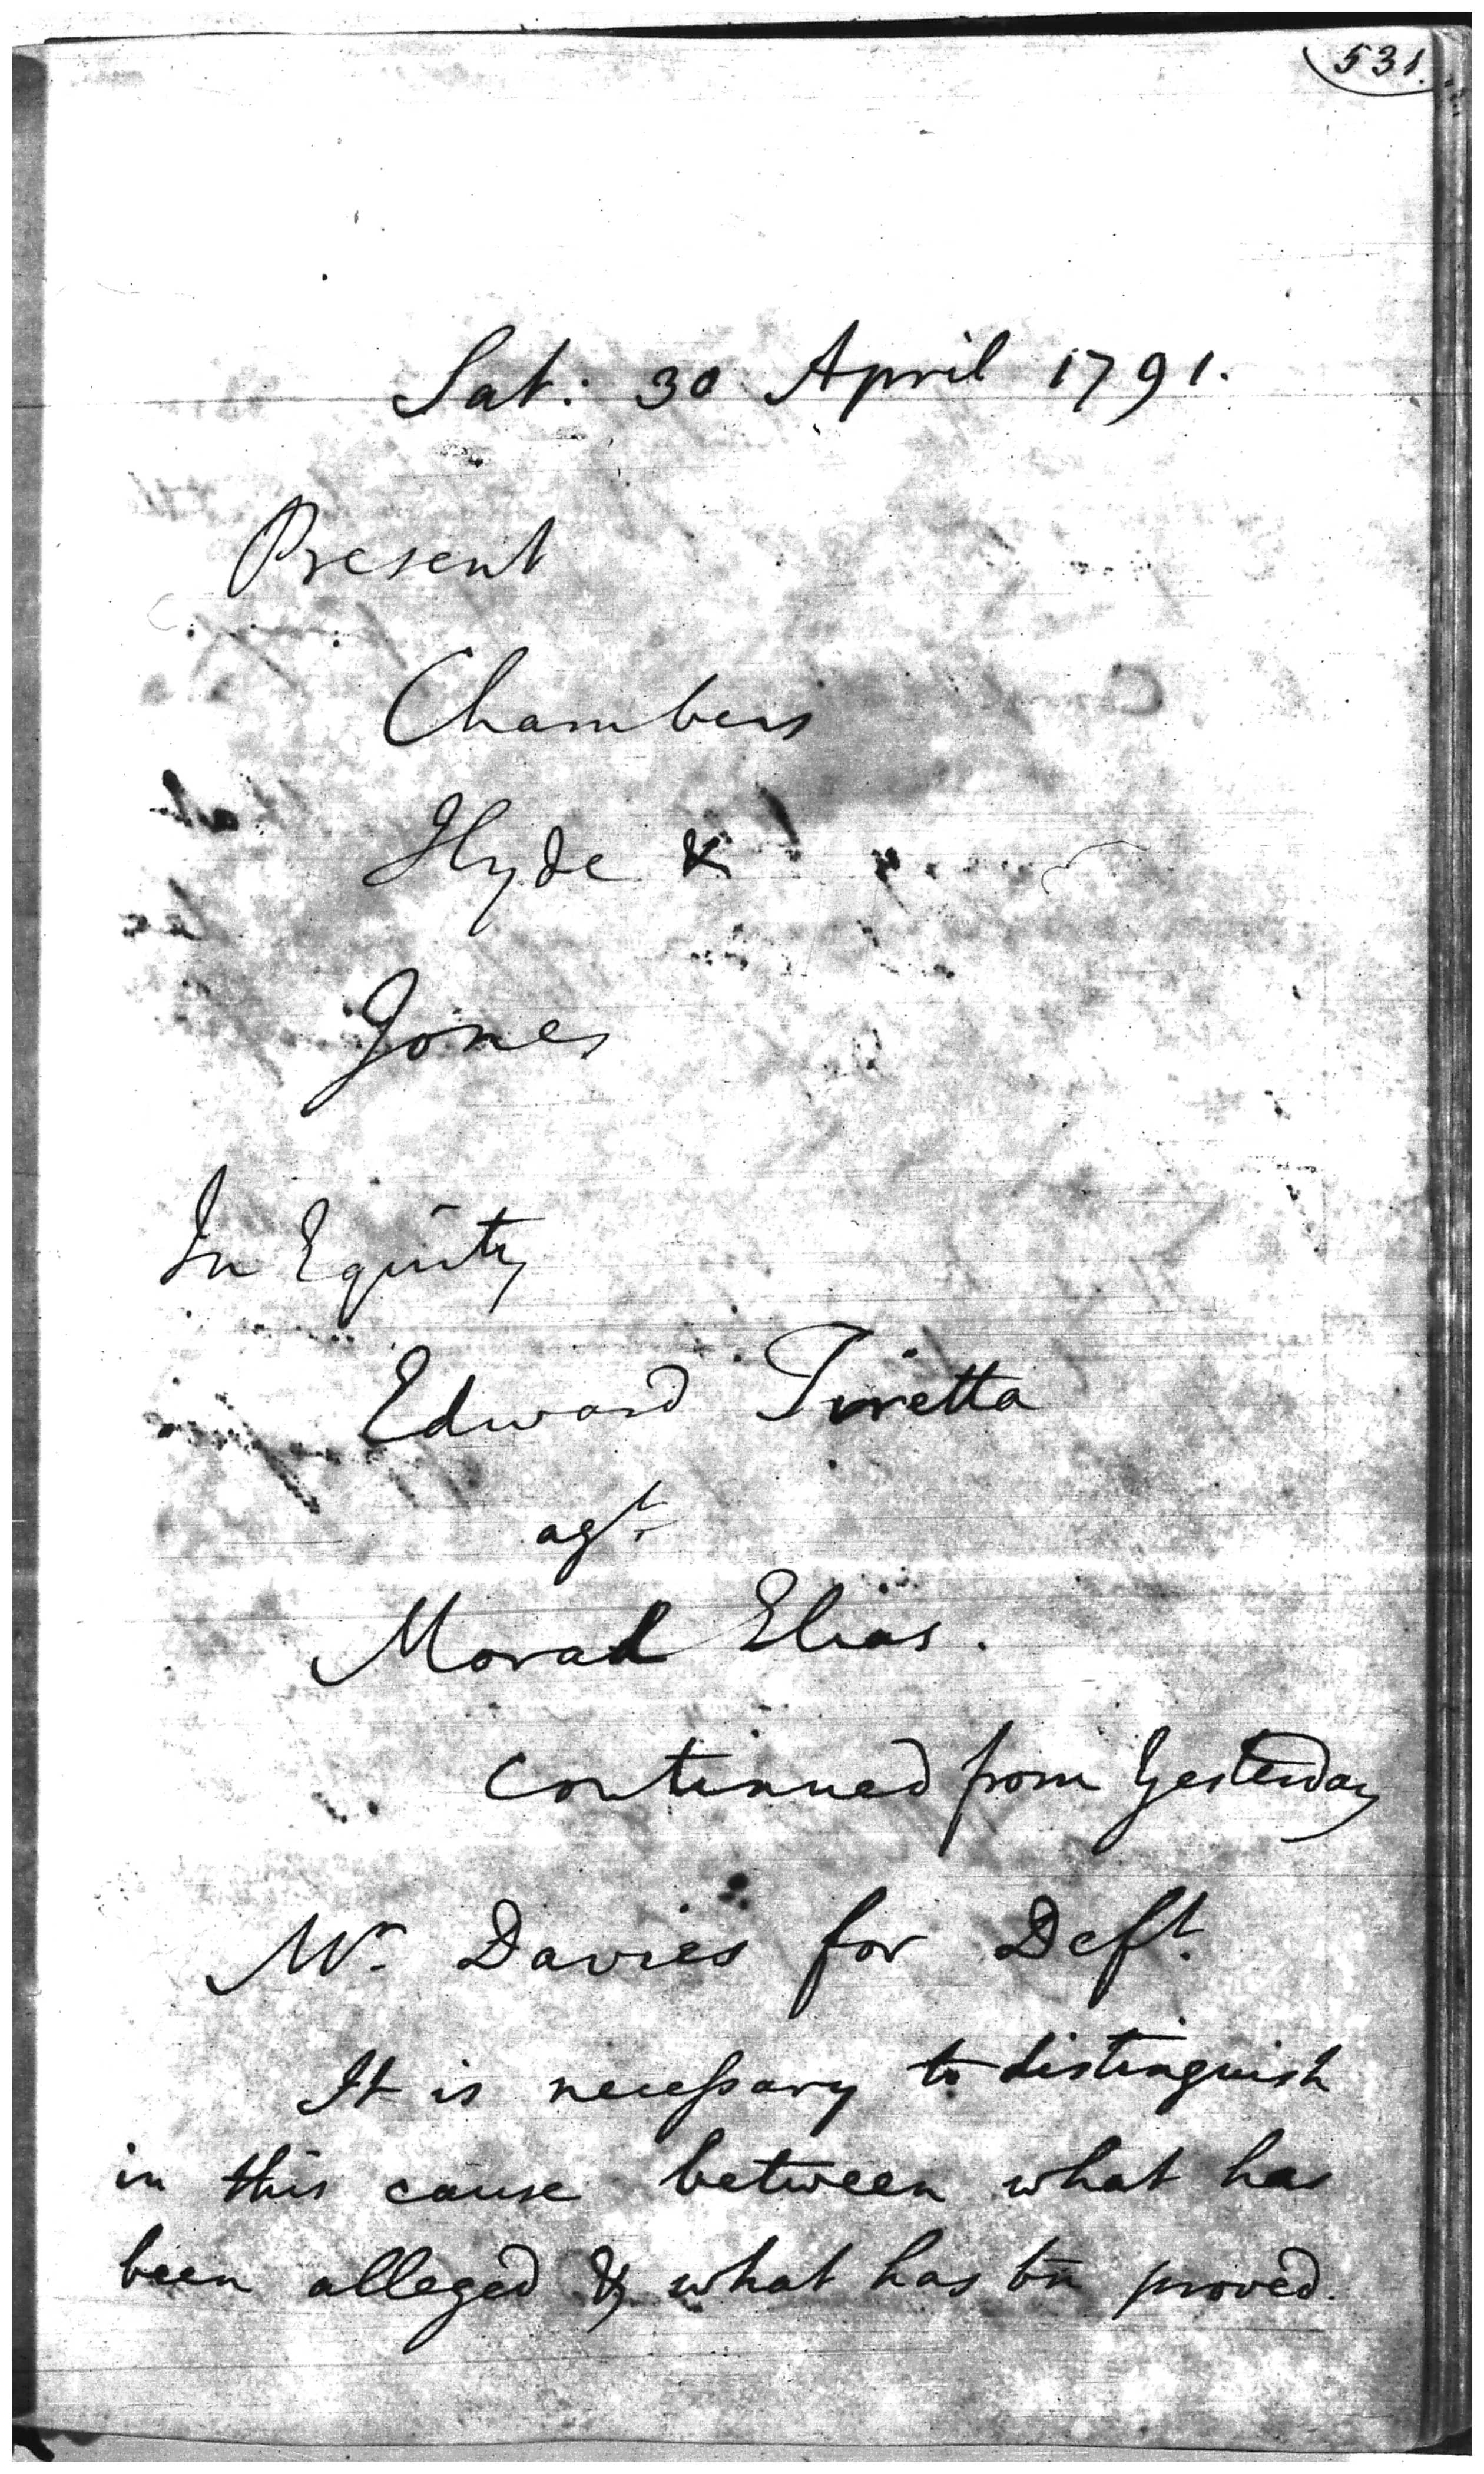 531.
Sat: 30 April 1791.
Present
Chambers
Hyde &
Jones
In Equity
Edward Tiretta
agt.
Morad Elias.
continued from Yesterday
Mr. Davies for Deft.
It is necessary to distinguish
in this cause between what has
been alleged & what has bn proved.